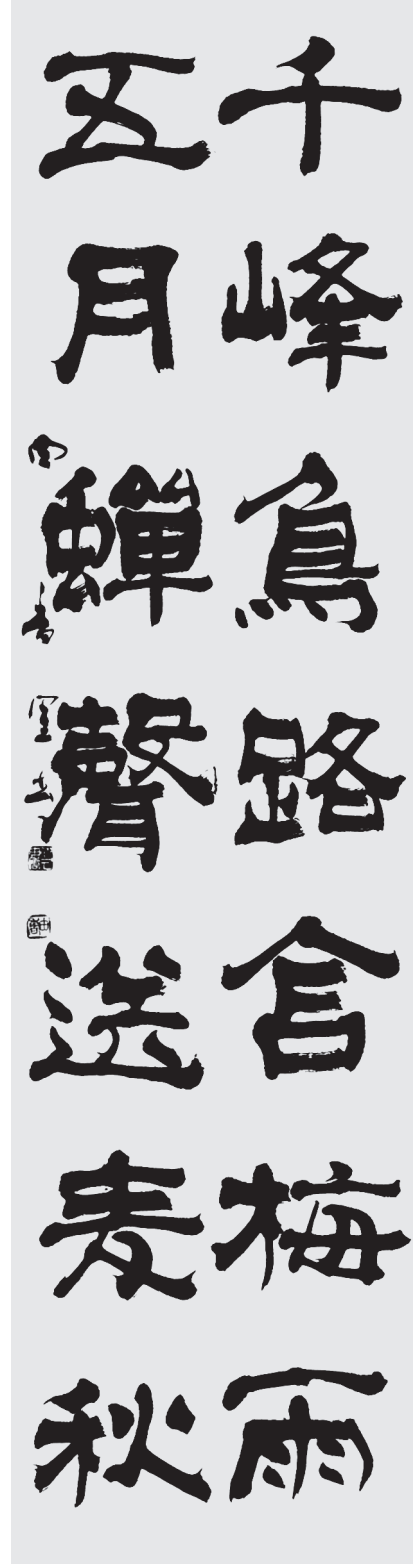 千峰鳥路含梅雨
五月蟬聲送麦秋